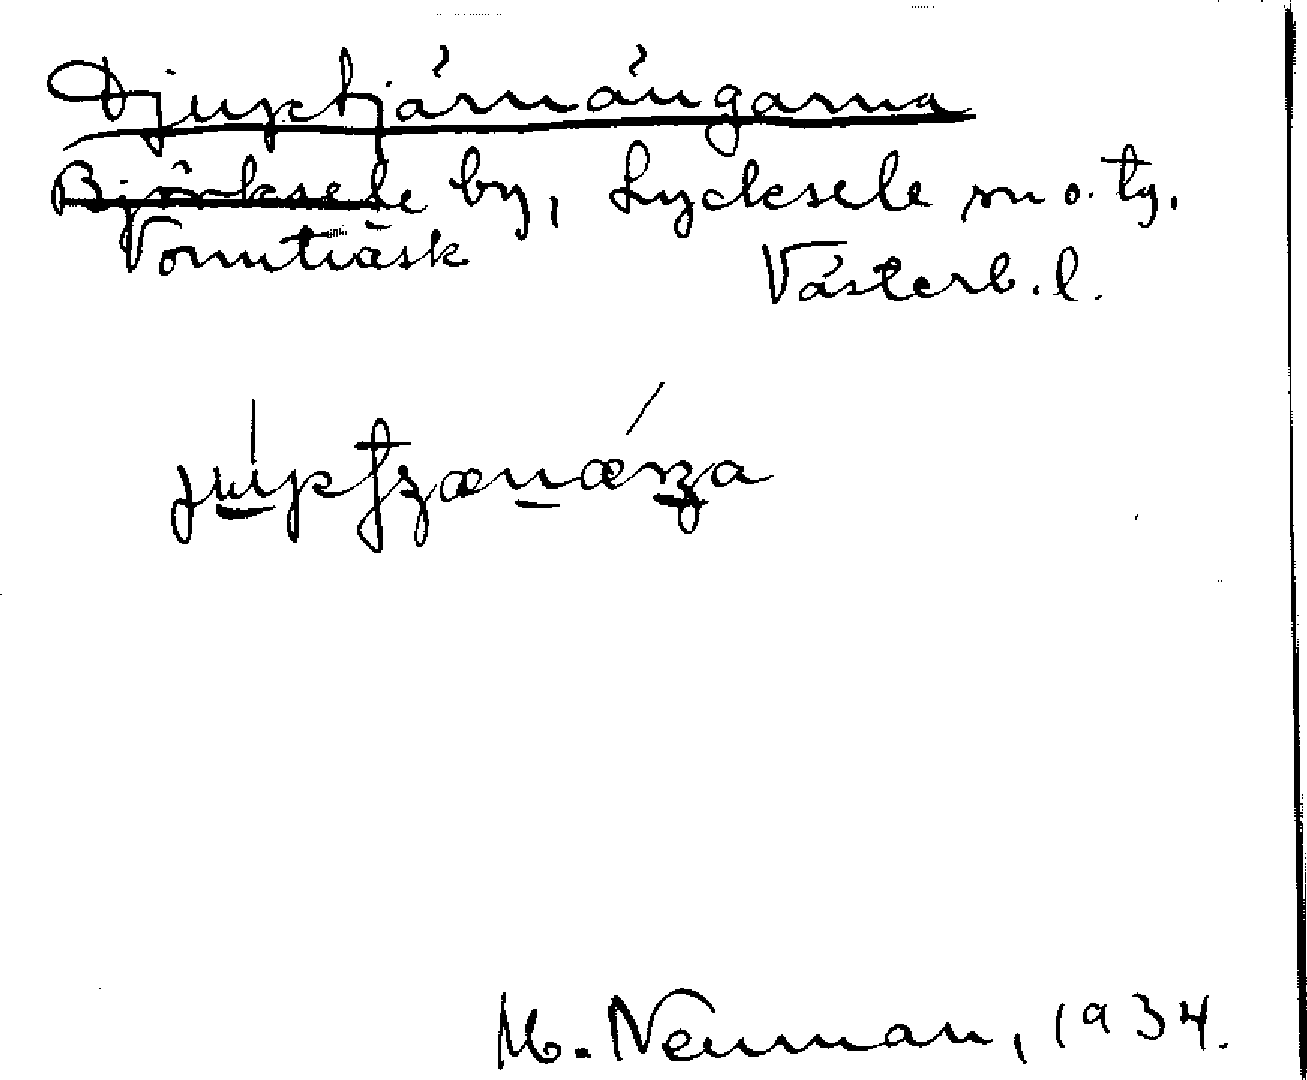 Djuptjärnängarna
Björksele by, Lycksele m o. tg.
Vormträsk Västerb. l.
M. Neuman, 1934.